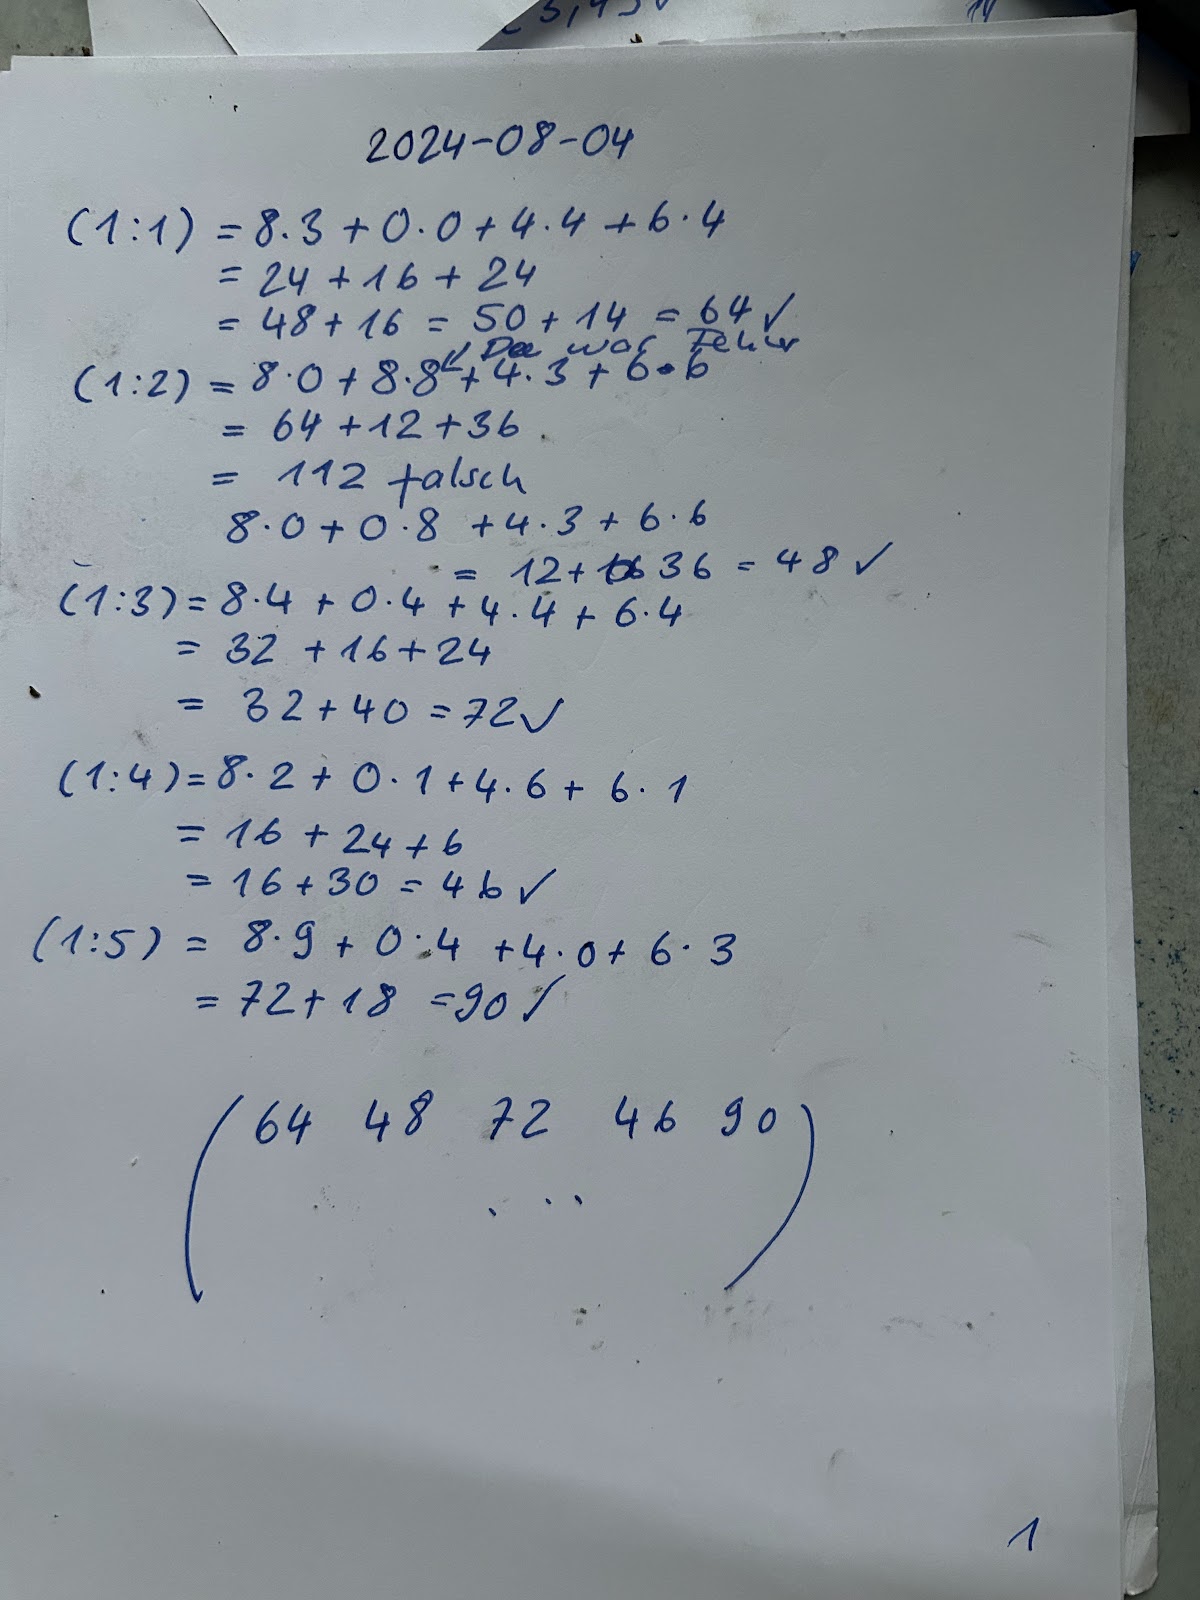 2024-08-04
(1:1) = 8·3 + 0·0 + 4·4 + 6·4
= 24 + 16 + 24
= 48 + 16 = 50 + 14 = 64 ✓
↙ war Fehler
(1:2) = 8·0 + 8·8 + 4·3 + 6·6
= 64 + 12 + 36
= 112 falsch
8·0 + 0·8 + 4·3 + 6·6
= 12 + 36 = 48 ✓
(1:3) = 8·4 + 0·4 + 4·4 + 6·4
= 32 + 16 + 24
= 32 + 40 = 72 ✓
(1:4) = 8·2 + 0·1 + 4·6 + 6·1
= 16 + 24 + 6
= 16 + 30 = 46 ✓
(1:5) = 8·9 + 0·4 + 4·0 + 6·3
= 72 + 18 = 90 ✓
( 64 48 72 46 90 )
. . .
1